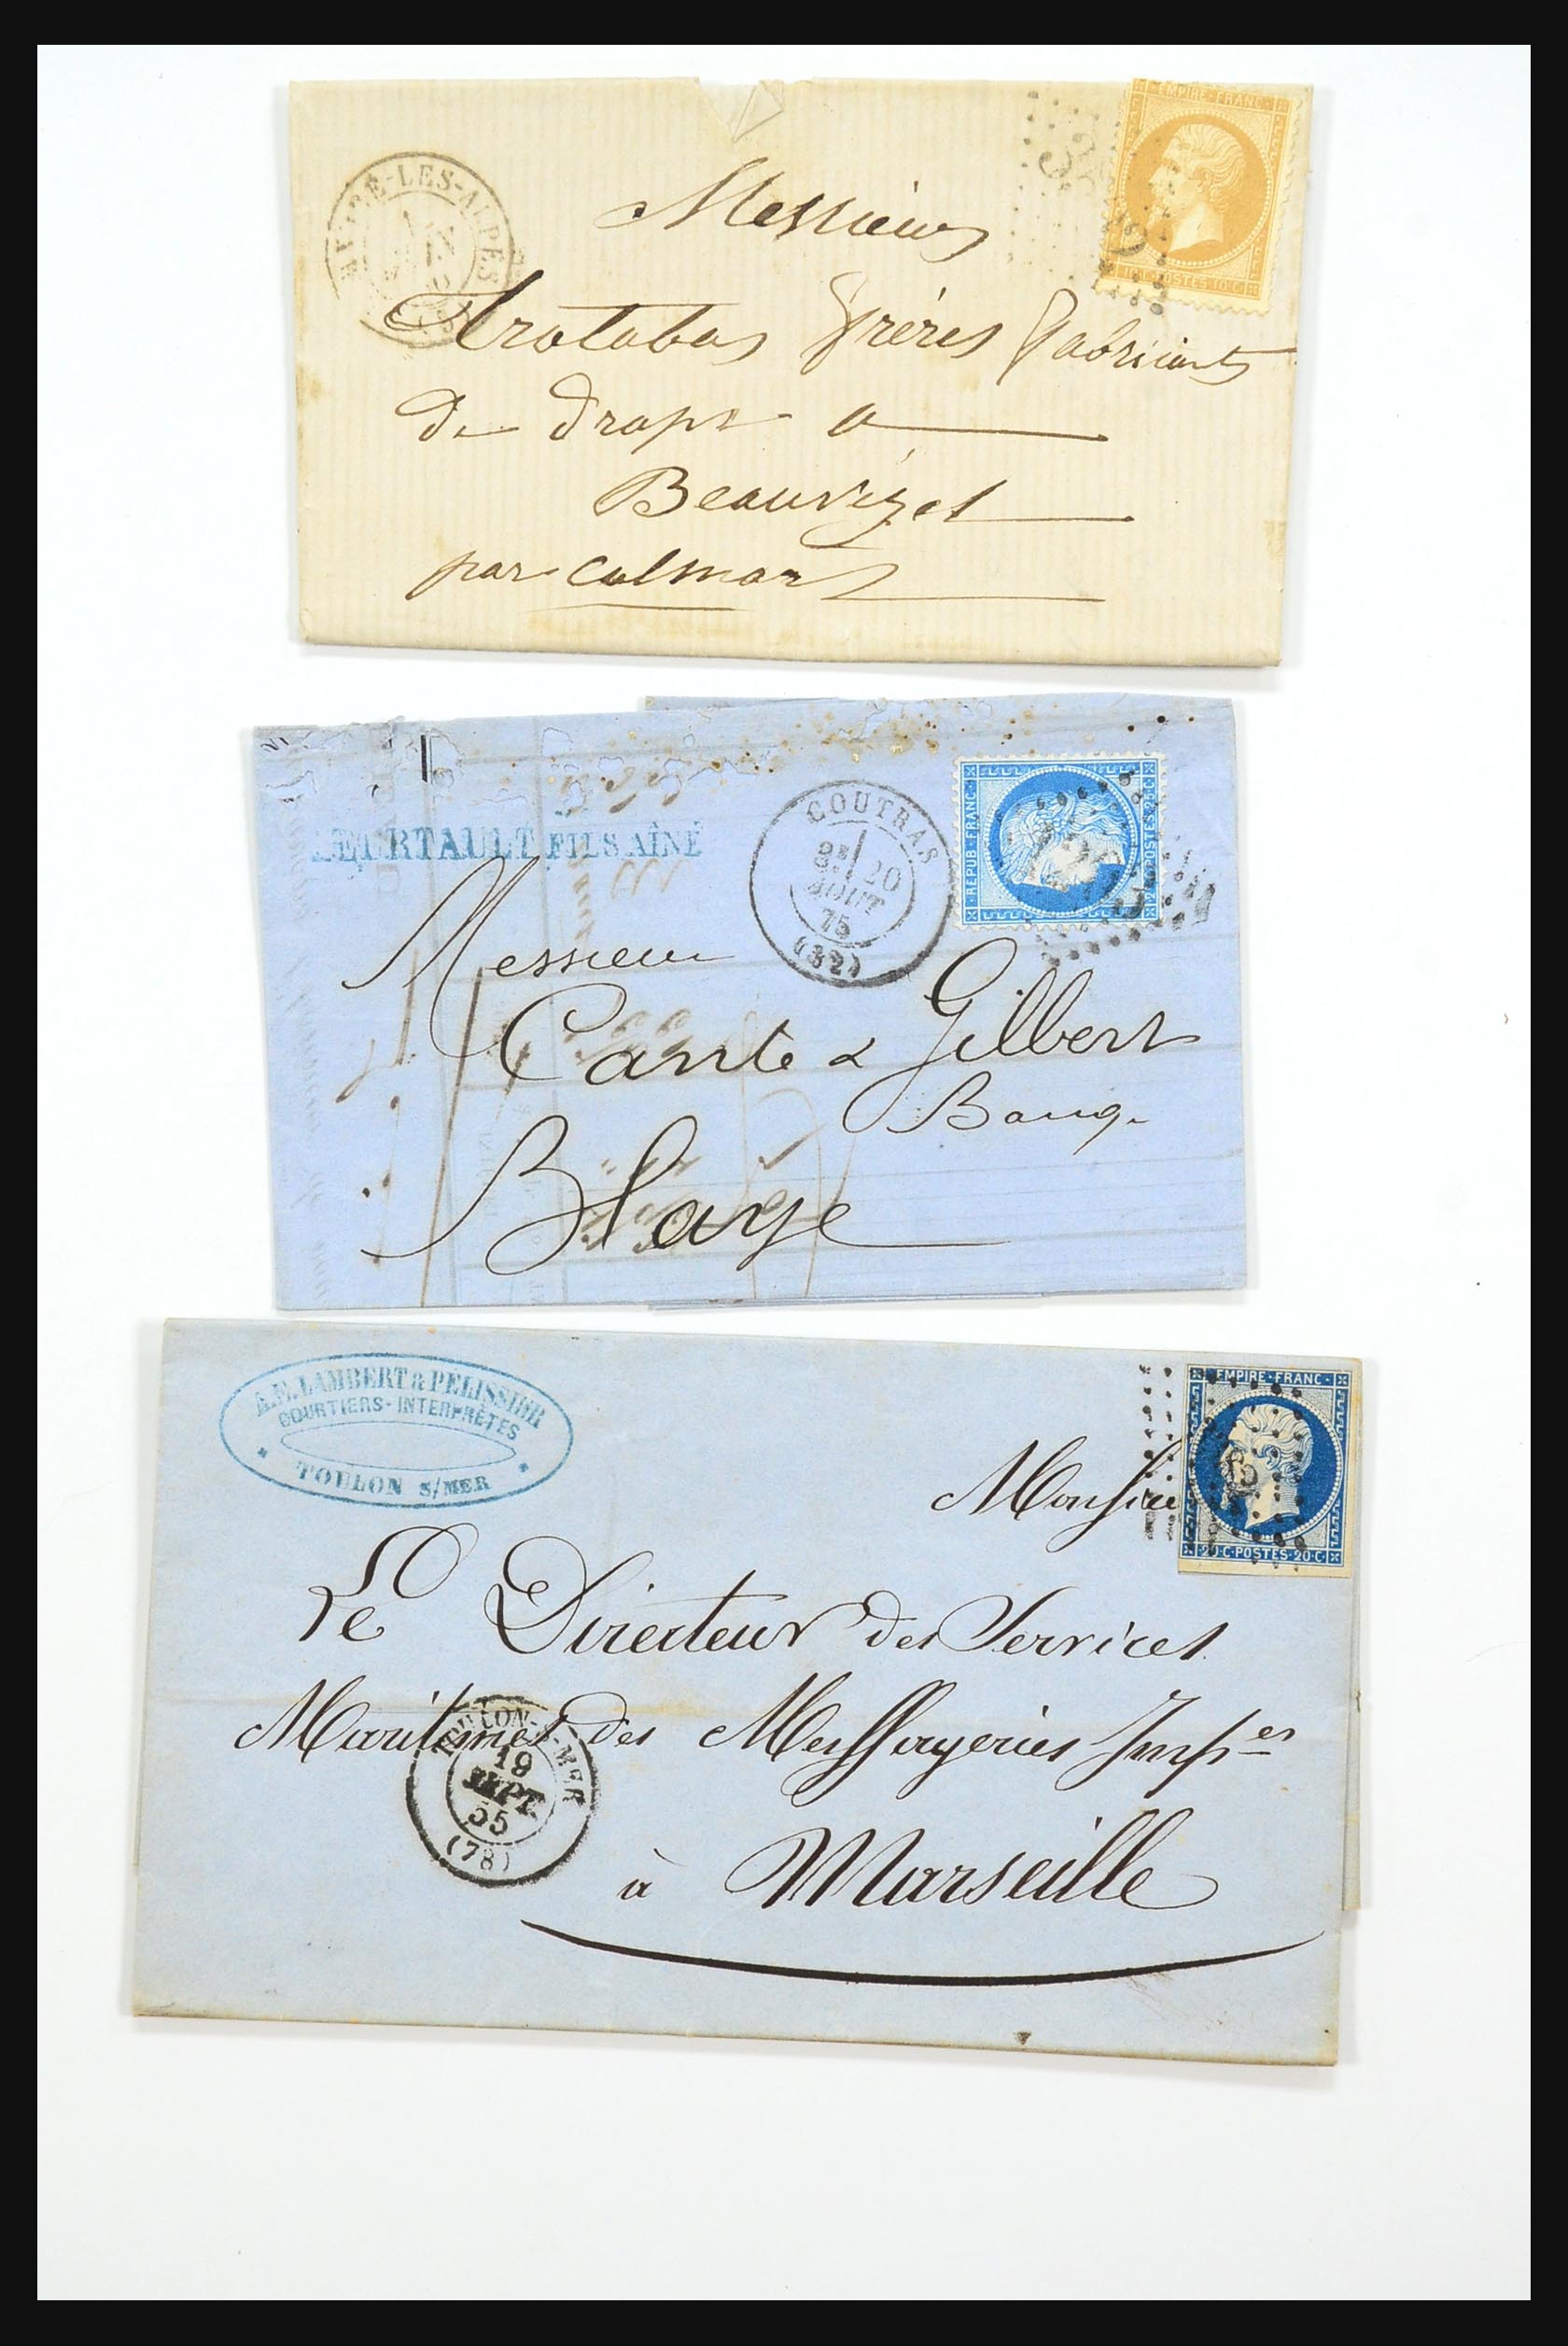 EMPIRE·FRANC·
10·C·POSTES·10·C·
-LES-ALPES
Messieurs
Trotabas frères fabricants
de draps a
Beauvezet
par Colmars
FILS AÎNÉ
COUTRAS
20
AOUT
75
(32)
REPUB·FRANC·
25·C·POSTES·25·C·
Messieurs
Cante & Gilbert
Banqr
Blaye
A.E. LAMBERT & PELISSIER
COURTIERS-INTERPRÈTES
TOULON S/MER
EMPIRE·FRANC·
20·C·POSTES·20·C·
Monsieur
Le Directeur des Services
Maritimes des Messageries Imples
à Marseille
TOULON-S-MER
19
SEPT.
55
(78)